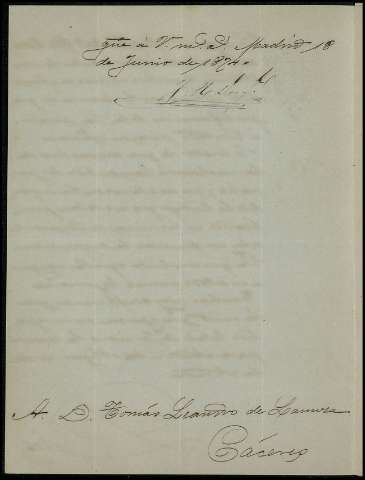 gūe á V. m.s a.s Madrid 18
de Junio de 1874.
A. D. Tomás Leandro de
Cáceres